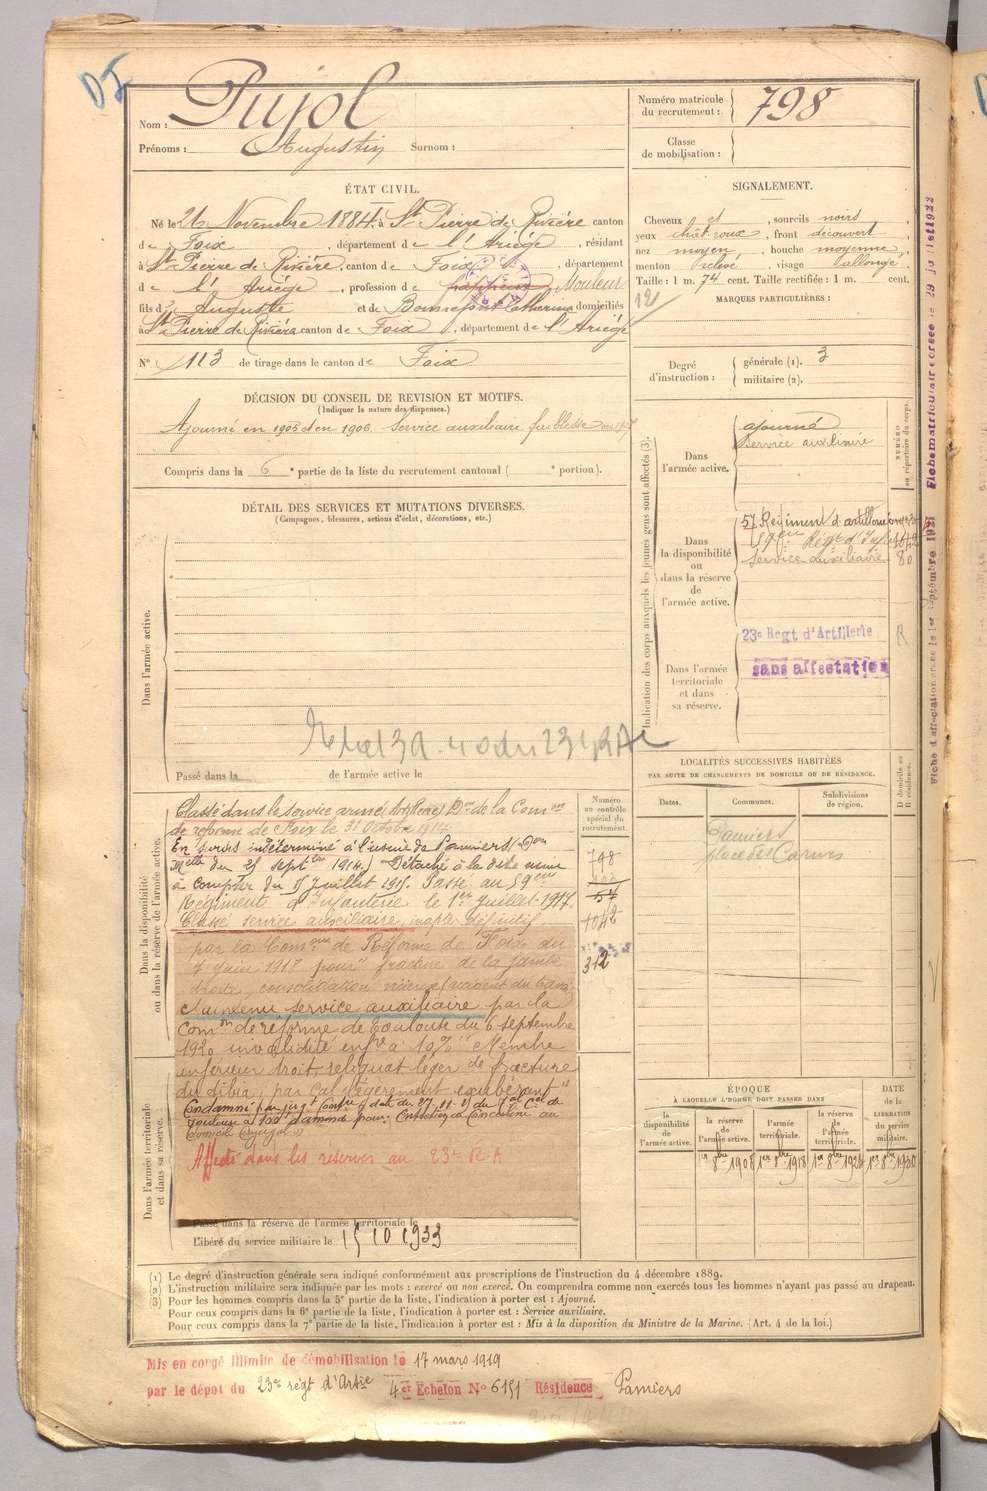 DI
Nom : Pujol
Prénoms : Augustin Surnom :
Numéro matricule du recrutement : 798
Classe de mobilisation :
ÉTAT CIVIL.
Né le 26 Novembre 1884, à St Pierre de Rivière canton
de Foix, département de l'Ariège, résidant
à St Pierre de Rivière, canton de Foix, département
de l'Ariège, profession de Mouleur
fils d' Auguste et de Bonnefont Catherine domiciliés
à St Pierre de Rivière canton de Foix, département de l'Ariège
N° 113 de tirage dans le canton de Foix
SIGNALEMENT.
Cheveux et, sourcils noirs,
yeux chât. roux, front découvert
nez moyen, bouche moyenne,
menton relevé, visage allongé,
Taille : 1 m. 74 cent. Taille rectifiée : 1 m. cent.
12
MARQUES PARTICULIÈRES :
Degré d'instruction :
générale (1). 3
militaire (2).
DÉCISION DU CONSEIL DE REVISION ET MOTIFS.
(Indiquer la nature des dispenses.)
Ajourné en 1905 et en 1906. Service auxiliaire faiblesse en 1907
Compris dans la 6e partie de la liste du recrutement cantonal ( e portion).
DÉTAIL DES SERVICES ET MUTATIONS DIVERSES.
(Campagnes, blessures, actions d'éclat, décorations, etc.)
Dans l'armée active.
Passé dans la de l'armée active le
Indication des corps auxquels les jeunes gens sont affectés (3).
NUMÉRO au répertoire du corps.
Dans l'armée active.
ajourné
Service auxiliaire
Dans la disponibilité ou dans la réserve de l'armée active.
57 Régiment d'artillerie
59eme Régt d'Inf
Service auxiliaire 80
Dans l'armée territoriale et dans sa réserve.
23e Regt d'Artillerie R
sans affectation
Fiche d'affectation créée le 1er Septembre 1921
Fiche matriculaire créée le 29 juillet 1922
LOCALITÉS SUCCESSIVES HABITÉES
PAR SUITE DE CHANGEMENTS DE DOMICILE OU DE RÉSIDENCE.
Dates. Communes. Subdivisions de région. D domicile ou R résidence.
Pamiers
place des Carmes
Dans la disponibilité ou dans la réserve de l'armée active.
Numéro au contrôle spécial du recrutement.
798
57
1048
312
Classé dans le service armé (Artillerie) Don de la Comon
de réforme de Foix le 31 Octobre 1914.
En sursis indéterminé à l'usine de Pamiers (Don
Melle du 25 septbre 1914.) Détaché à la dite usine
à compter du 15 Juillet 1915. Passé au 59eme
Régiment d'Infanterie le 1er Juillet 1917.
Classé service auxiliaire, inapte définitif
par la Comon de Réforme de Foix du
7 juin 1918 pour "fracture de la jambe
droite, consolidation vicieuse (accident du travail
Maintenu service auxiliaire par la
Comon de réforme de Toulouse du 6 septembre
1920 invalidité infre à 10% "Membre
inférieur droit, reliquat léger de fracture
du tibia, par cal légèrement exubérant"
Condamné par jugt contre date du 27-11-21 du
Toulouse à 100f d'amende pour: Entretien de Concubine au
domicile conjugal
Affecté dans les réserves au 23e R-A
Dans l'armée territoriale et dans sa réserve.
Passé dans la réserve de l'armée territoriale le
Libéré du service militaire le 15 10 1933
ÉPOQUE
À LAQUELLE L'HOMME DOIT PASSER DANS
DATE de la LIBÉRATION du service militaire.
la disponibilité de l'armée active.
la réserve de l'armée active.
l'armée territoriale.
la réserve de l'armée territoriale.
1er 8bre 1908 1er 8bre 1918 1er 8bre 1924 1er 8bre 1930
(1) Le degré d'instruction générale sera indiqué conformément aux prescriptions de l'instruction du 4 décembre 1889.
(2) L'instruction militaire sera indiquée par les mots : exercé ou non exercé. On comprendra comme non exercés tous les hommes n'ayant pas passé au drapeau.
(3) Pour les hommes compris dans la 5e partie de la liste, l'indication à porter est : Ajourné.
Pour ceux compris dans la 6e partie de la liste, l'indication à porter est : Service auxiliaire.
Pour ceux compris dans la 7e partie de la liste, l'indication à porter est : Mis à la disposition du Ministre de la Marine. (Art. 4 de la loi.)
Mis en congé illimité de démobilisation le 17 mars 1919
par le dépôt du 23e régt d'Artie 4er Echelon No 6151 Résidence Pamiers